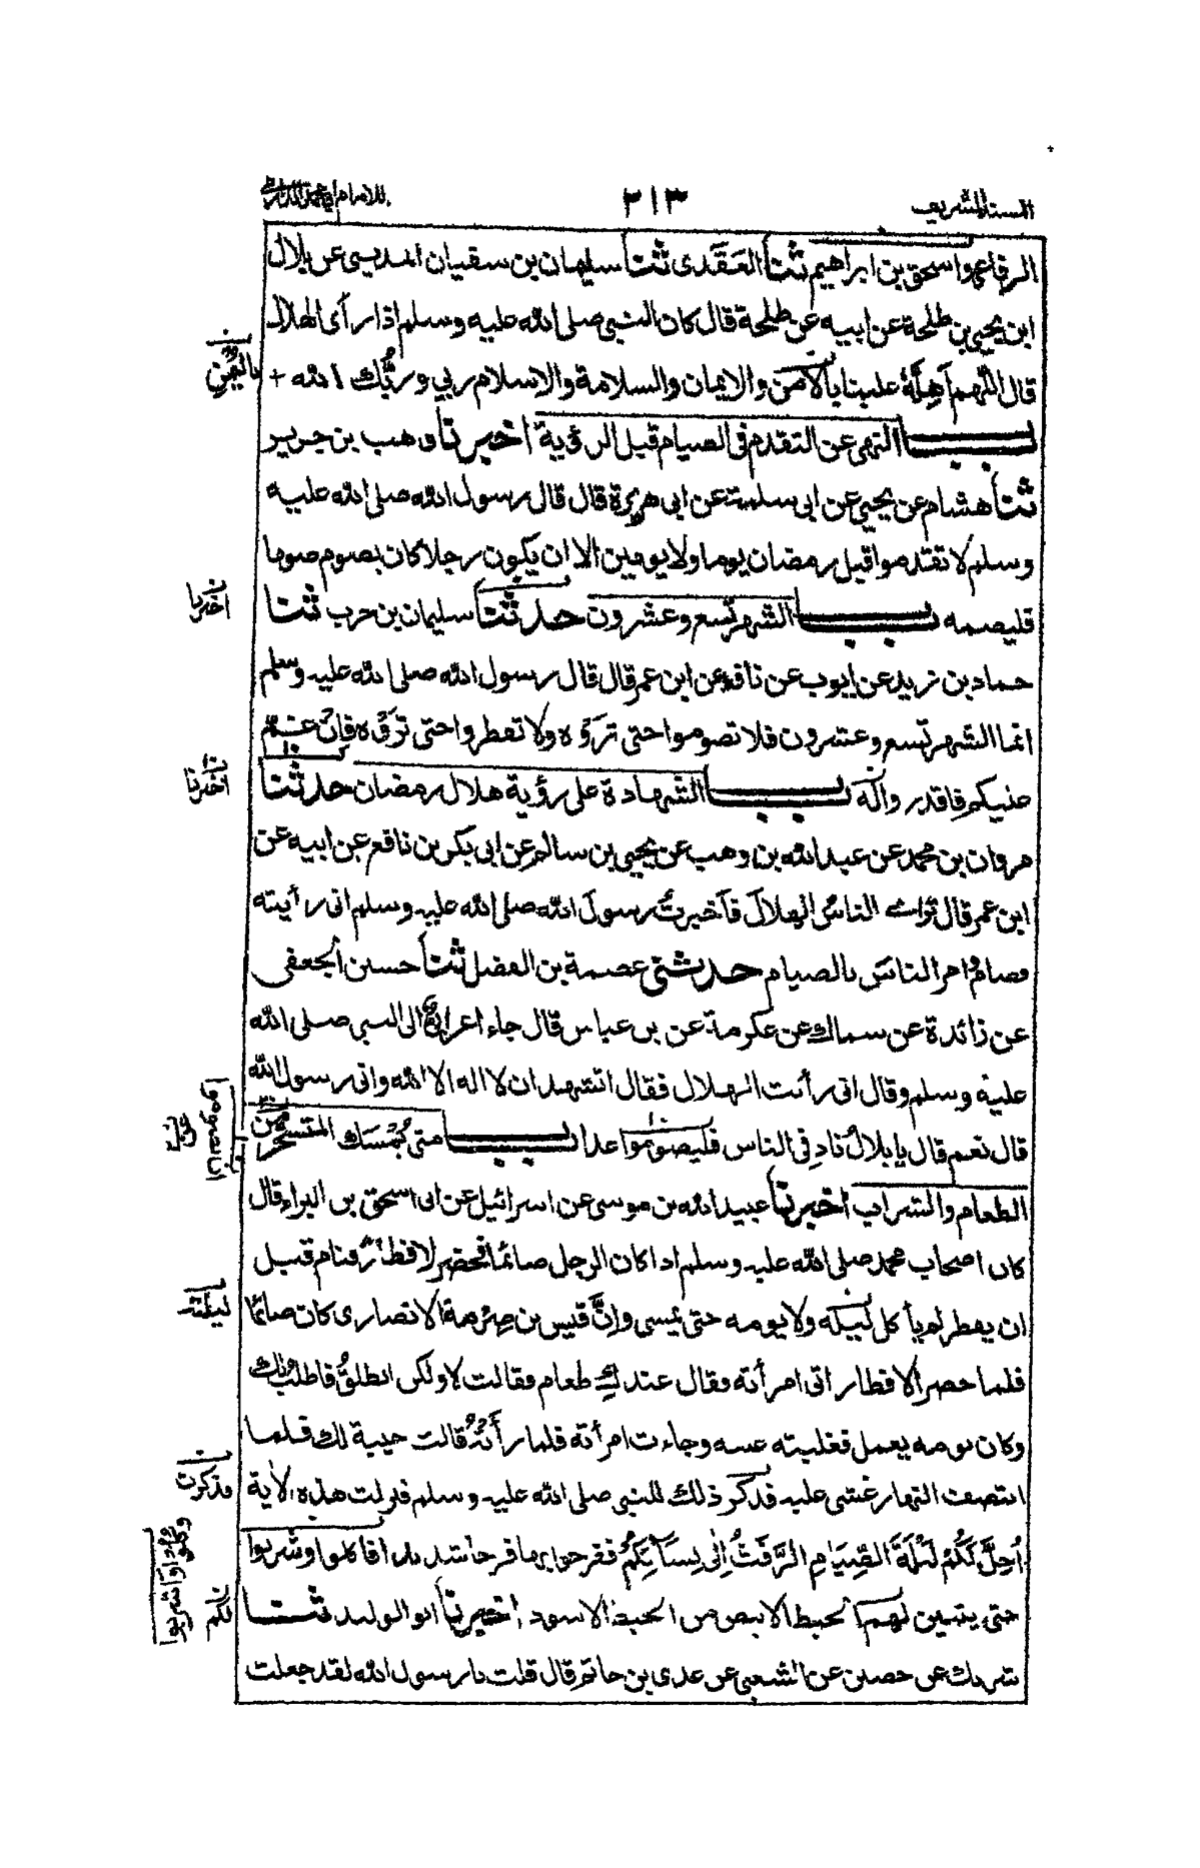 السنن الشريف
٢١٣
للامام ابي محمد الدارمي
الرفاعي واسحق بن ابراهيم ثنا العقدى ثنا سليمان بن سفيان المديني عن بلال
ابن يحيى بن طلحة عن ابيه عن طلحة قال كان النبى صلى الله عليه وسلم اذا رأى الهلال
قال اللهم اَهِلَّهٗ علينا بالامن والايمان والسلامة والاسلام ربي وربُّك الله +
باب النهى عن التقدم فى الصيام قبل الرؤية اخبرنا وهب بن جرير
ثنا هشام عن يحيى عن ابى سلمة عن ابى هريرة قال قال رسول الله صلى الله عليه
وسلم لا تقدموا قبل رمضان يوما ولا يومين الا ان يكون رجلا كان يصوم صوما
فليصمه باب الشهر تسع وعشرون حدثنا سليمان بن حرب ثنا
حماد بن زيد عن ايوب عن نافع عن ابن عمر قال قال رسول الله صلى الله عليه وسلم
انما الشهر تسع وعشرون فلا تصوموا حتى تَرَوْه ولا تفطروا حتى تَرَوْه فان غُمَّ
عليكم فاقدروا له باب الشهادة على رؤية هلال رمضان حدثنا
مروان بن محمد عن عبد الله بن وهب عن يحيى بن سالم عن ابى بكر بن نافع عن ابيه عن
ابن عمر قال تراءى الناسُ الهلالَ فاخبرتُ رسولَ الله صلى الله عليه وسلم انى رأيته
فصام وامر الناسَ بالصيام حدثني عصمة بن الفضل ثنا حسين الجعفى
عن زائدة عن سماك عن عكرمة عن بن عباس قال جاء اعرابيٌّ الى النبي صلى الله
عليه وسلم وقال انى رأيت الهلال فقال اتشهد ان لا اله الا الله وانى رسول الله
قال نعم قال يا بلالُ نادِ فى الناس فليصوموا غدا باب متى يُمْسك المتسحر من
الطعام والشراب اخبرنا عبيد الله بن موسى عن اسرائيل عن ابى اسحق عن البراء قال
كان اصحاب محمد صلى الله عليه وسلم اذا كان الرجل صائما فحضر الافطارُ فنام قبل
ان يفطر لم يأكل ليلته ولا يومه حتى يُمسى وانَّ قيس بن صِرْمة الانصارى كان صائما
فلما حضر الافطار اتى امرأته وقال عندكِ طعام فقالت لا ولكن انطلقُ فاطلبُ لك
وكان يومه يعمل فغلبته عينه وجاءت امرأته فلما رأَتْهُ قالت خيبة لك فلما
انتصف النهار غشى عليه فذكر ذلك للنبى صلى الله عليه وسلم فنزلت هذه الاية
اُحِلَّ لَكُمْ لَيْلَةَ الصِّيَامِ الرَّفَثُ اِلٰى نِسَائِكُمْ ففرحوا بها فرحا شديدا فاكلوا وشربوا
حتى يتبين لهم الخيط الابيض من الخيط الاسود اخبرنا ابو الوليد ثنا
شريك عن حصين عن الشعبى عن عدى بن حاتم قال قلت يا رسول الله لقد جعلت
باليُمْنِ
اخبرنا
اخبرنا
ليلته
فذكرت
وكُلُوْا وَاشربوا
لكم